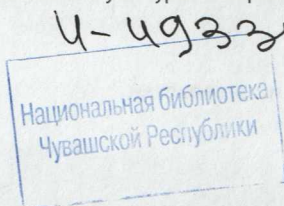 И-4933
Национальная библиотека
Чувашской Республики